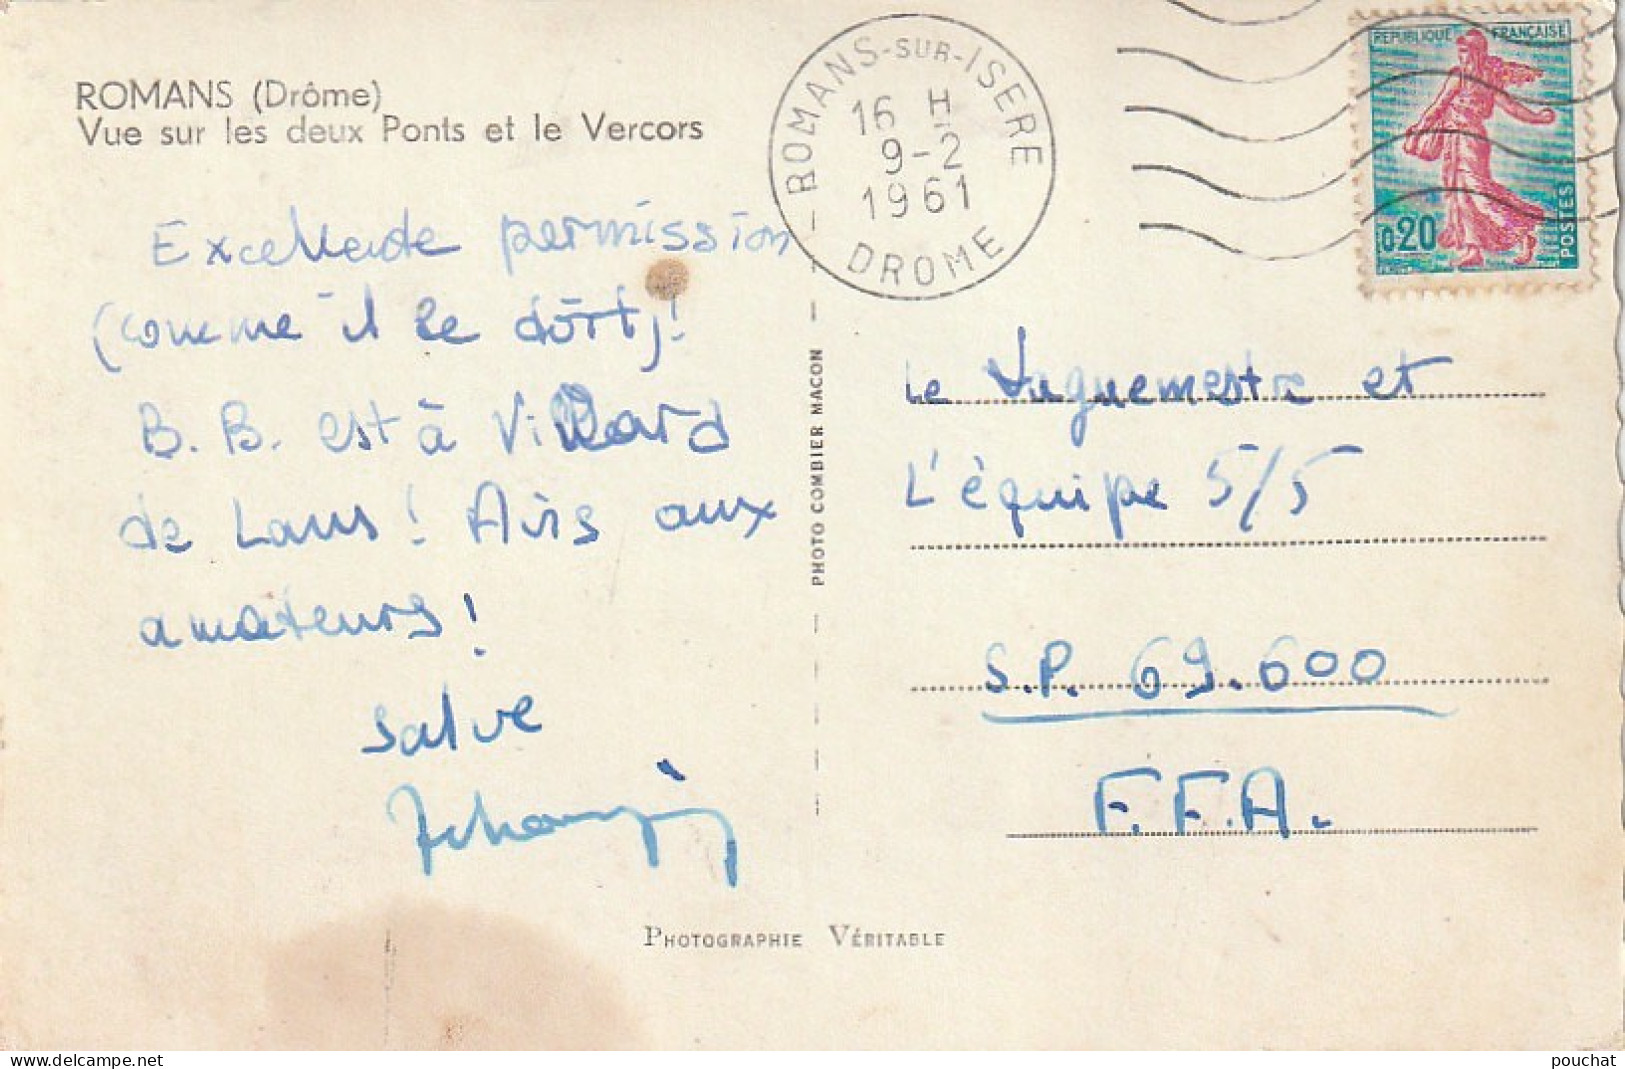 ROMANS (Drôme)
Vue sur les deux Ponts et le Vercors
ROMANS-SUR-ISERE
16 H
9-2
1961
DROME
REPUBLIQUE FRANÇAISE
0,20
POSTES
Excellente permission
(comme il se doit)!
B. B. est à Villard
de Lans! Avis aux
amateurs!
Salve
PHOTO COMBIER MACON
Le Vaguemestre et
L'équipe 5/5
S.P. 69.600
F.F.A.
PHOTOGRAPHIE VÉRITABLE
delcampe.net
pouchat